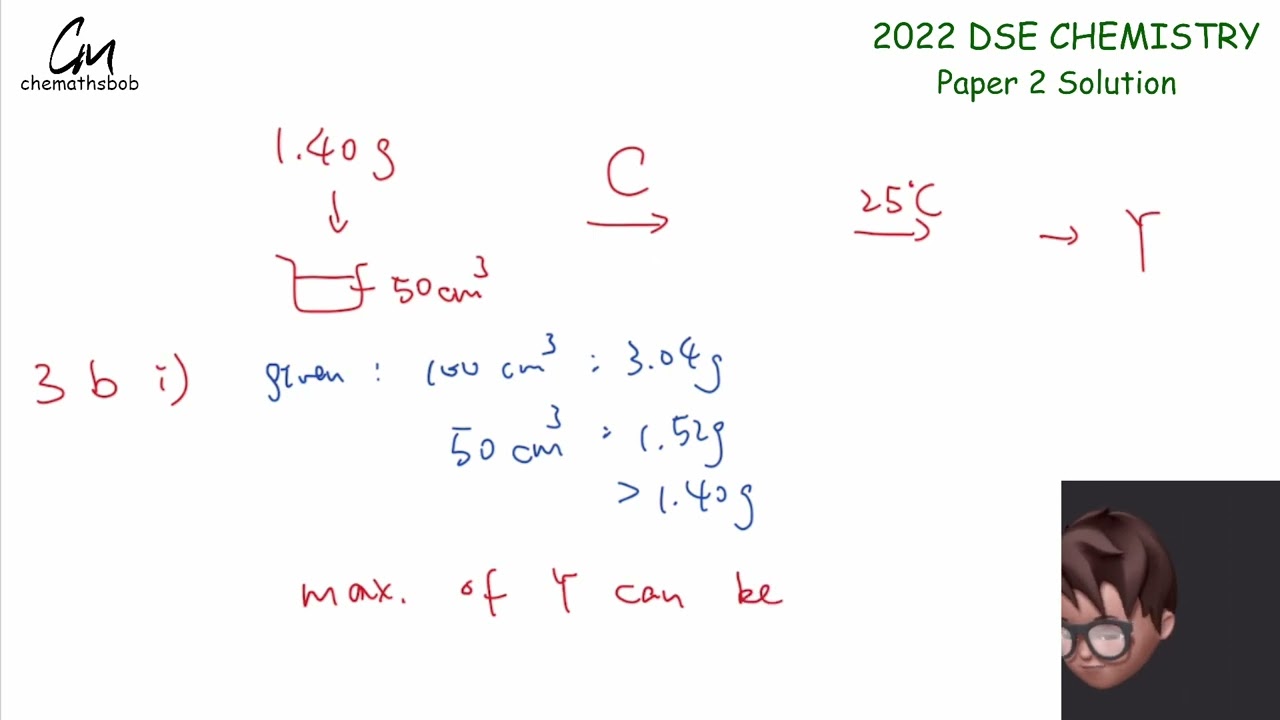 Cm
chemathsbob
2022 DSE CHEMISTRY
Paper 2 Solution
1.40 g
50 cm³
C
25°C
Y
3 b i) given : 100 cm³ : 3.04g
50 cm³ : 1.52g
> 1.40g
max. of Y can be